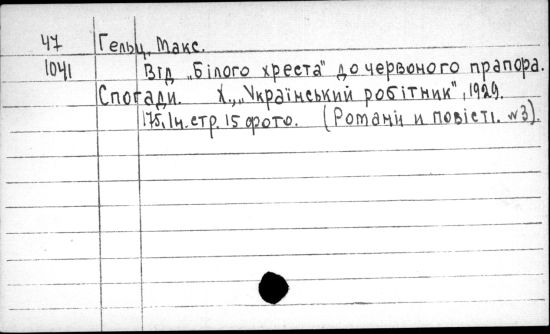 47 Гельц, Макс.
1041 Від „Білого хреста" до червоного прапора.
Спогади. Х., „Український робітник", 1929.
175, Iн. стр. 15 фото. (Романи и повісті. №3).